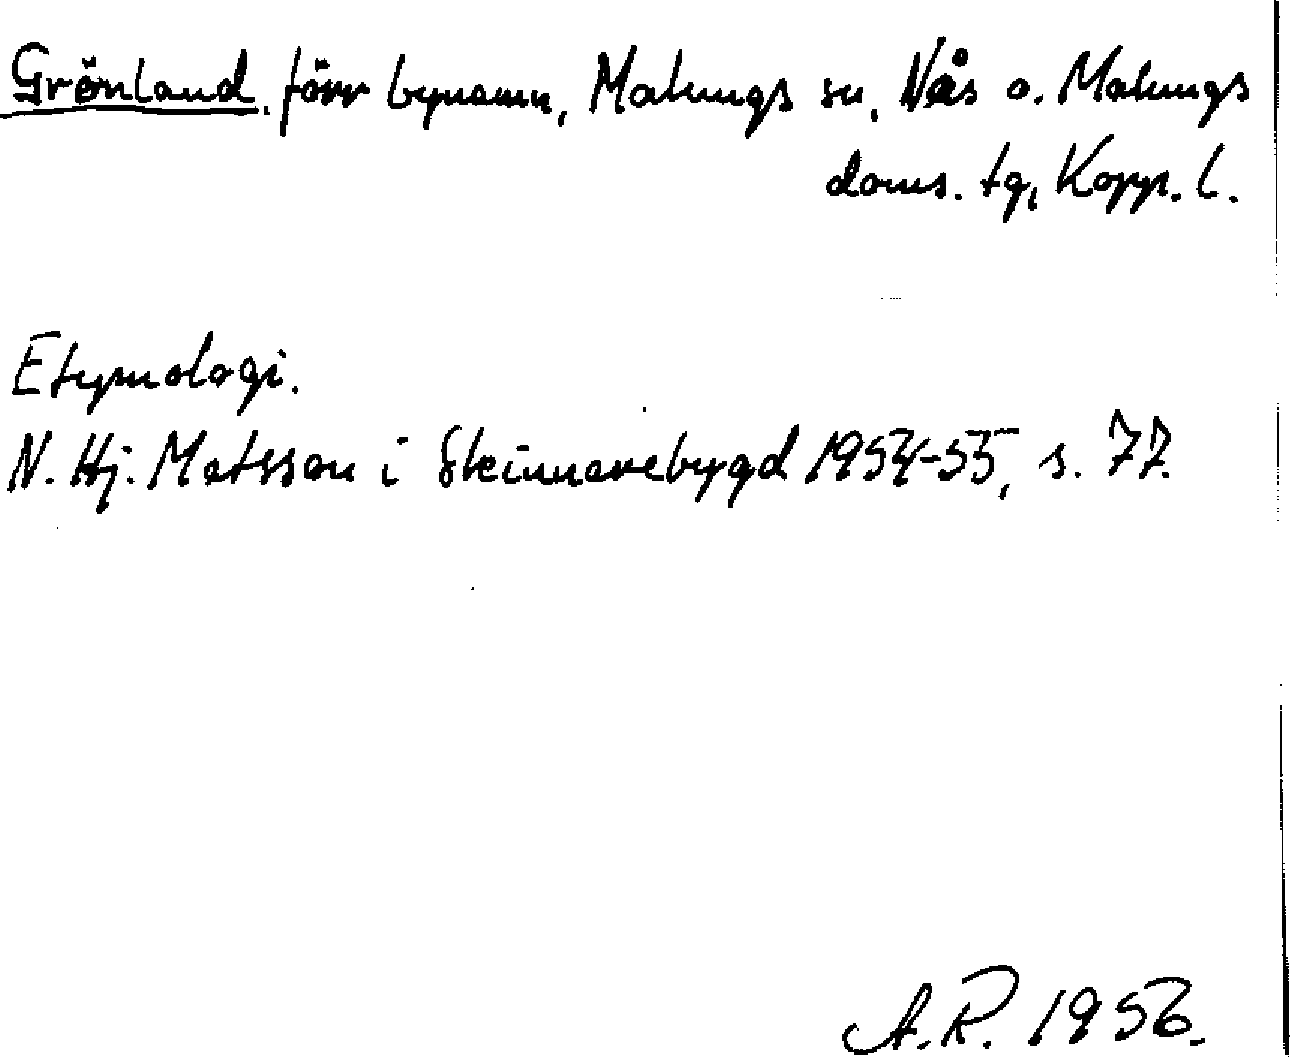 Grönland, förr bynamn, Malungs sn, Nås o. Malungs
doms. tg, Kopp. l.
Etymologi.
N. Hj. Matsson i Skinnarebygd 1954-55, s. 77.
A.R. 1956.